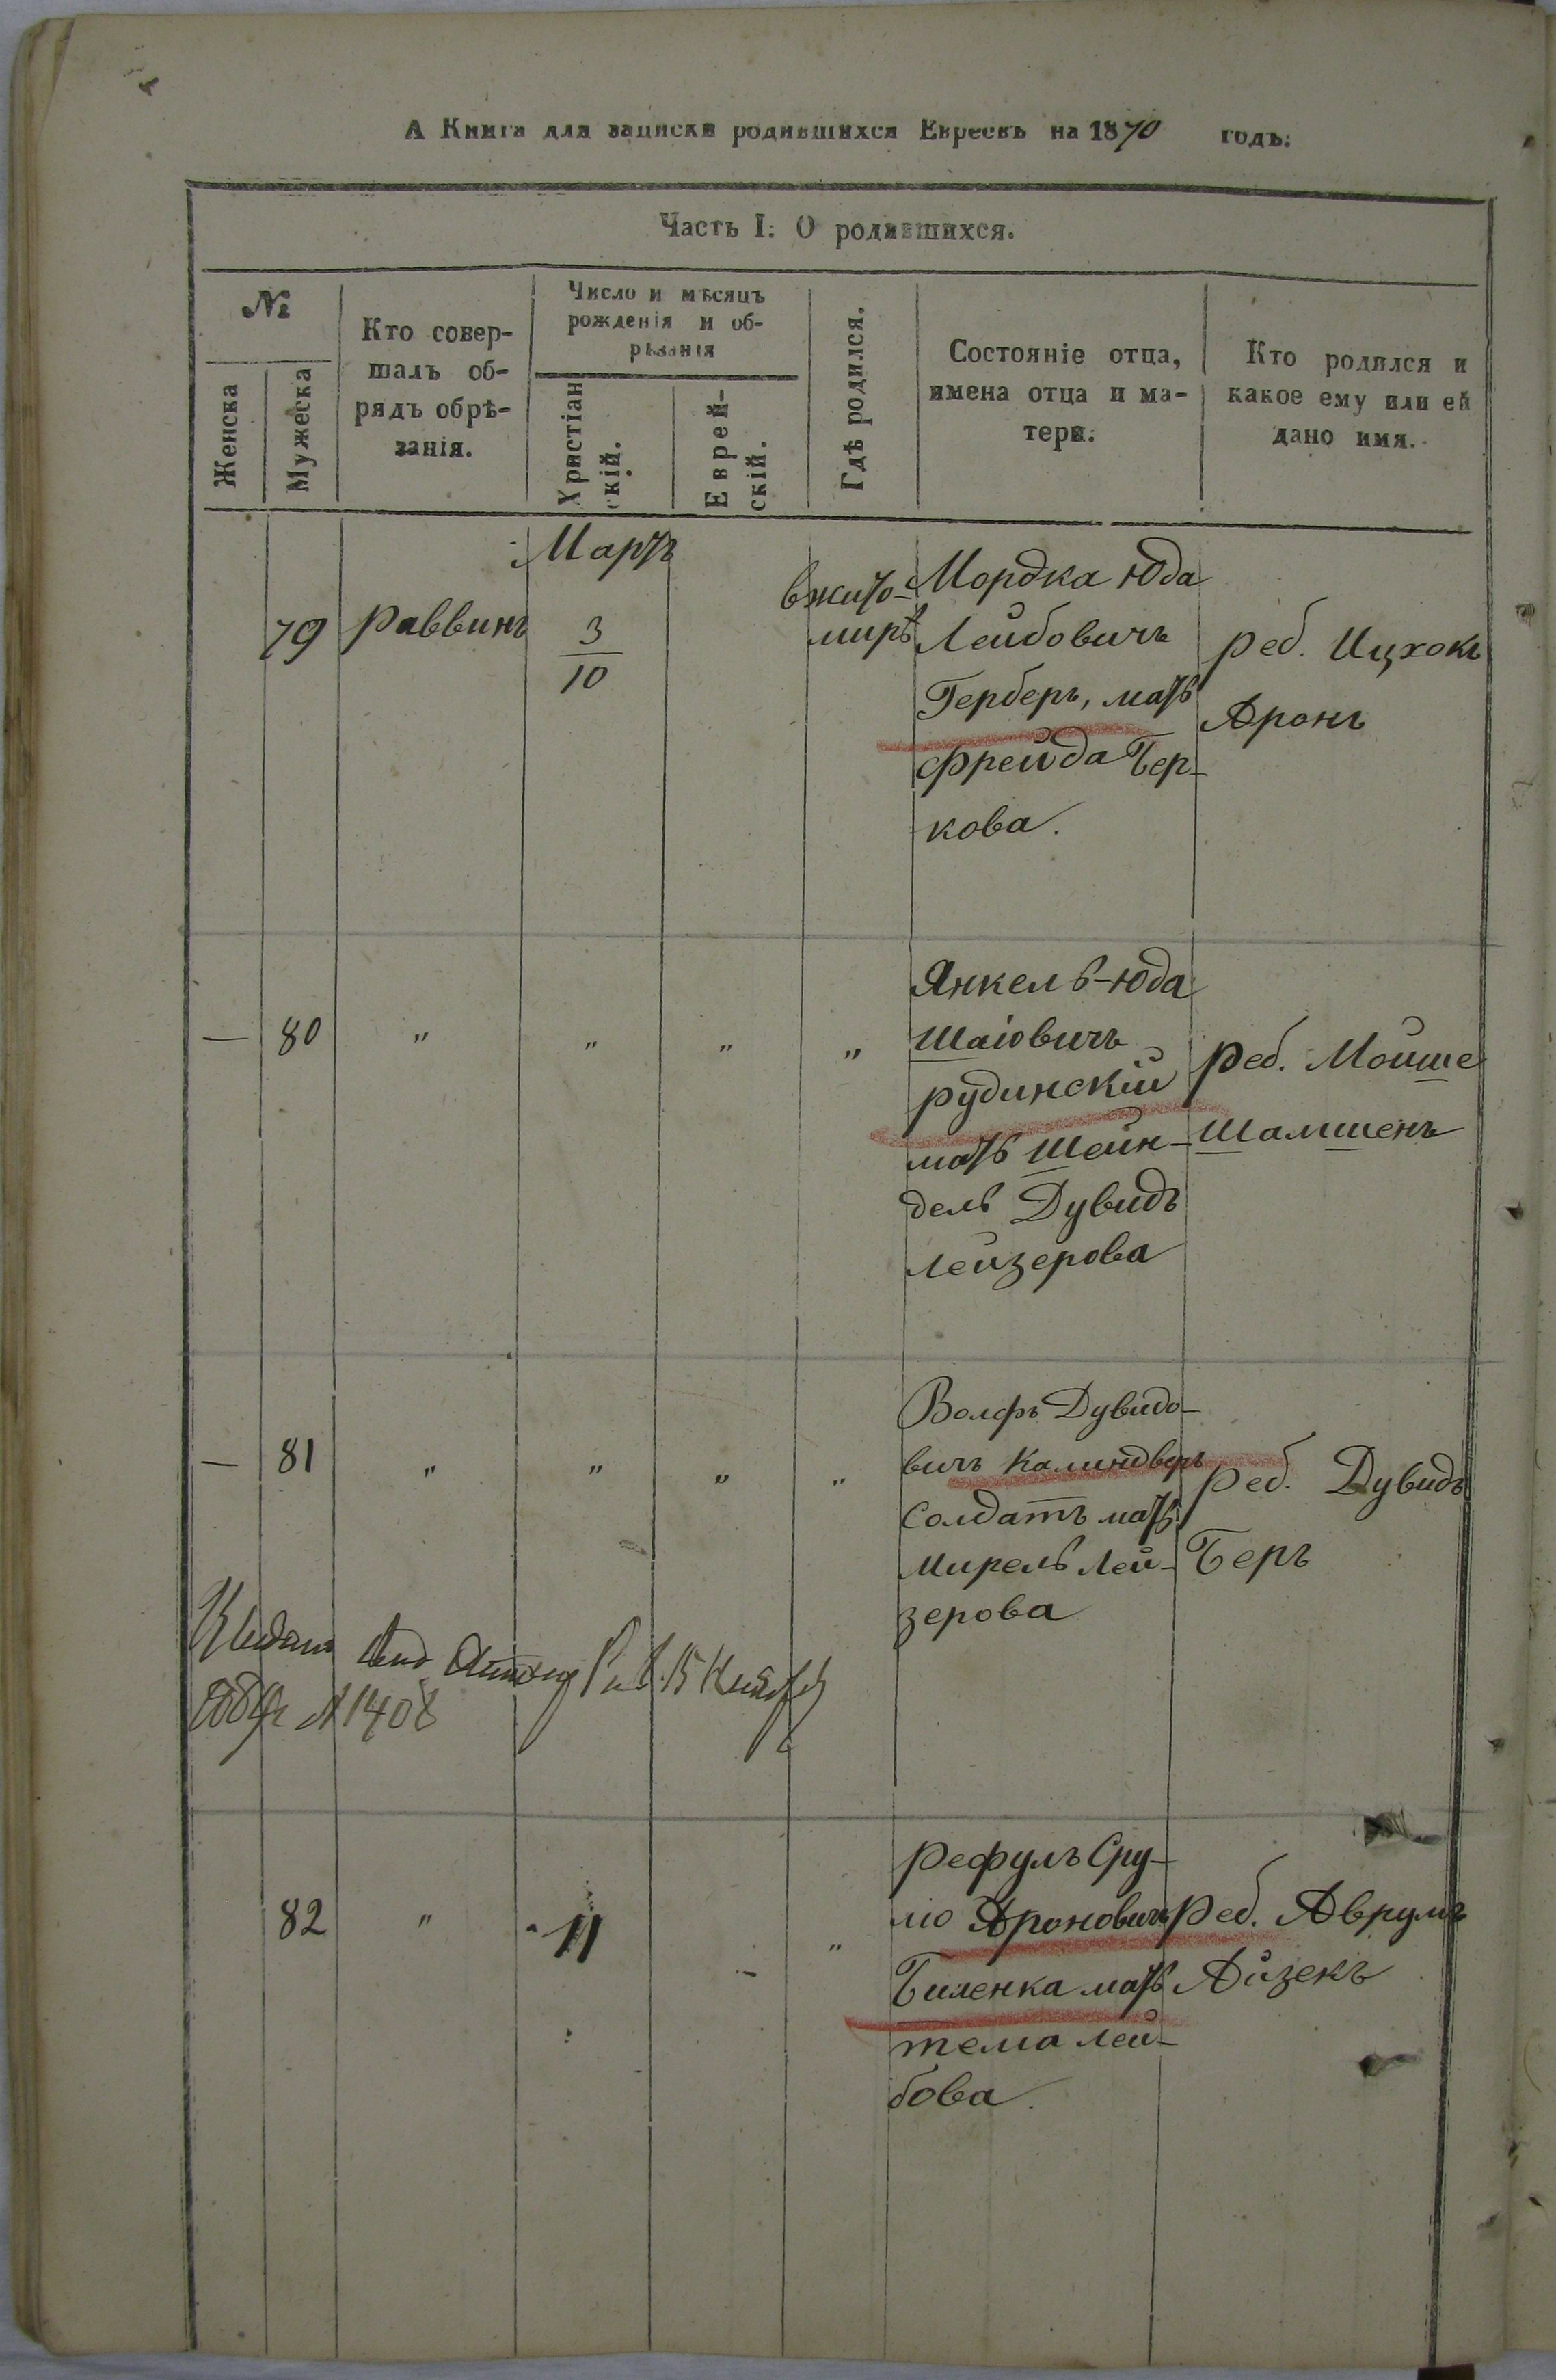 А Книга для записки родившихся Евреевъ на 1870 годъ:
Часть I: О родившихся.
№
Женска
Мужеска
Кто совер-
шалъ об-
рядъ обрѣ-
занія.
Число и мѣсяцъ
рожденія и об-
рѣзанія
Христіан
скій.
Еврей-
скій.
Гдѣ родился.
Состояніе отца,
имена отца и ма-
тери.
Кто родился и
какое ему или ей
дано имя.
Мартъ
79 Раввинъ 3
10
в жито-
мирѣ
Мордка Юда
Лейбовичъ
Герберъ, мать
Фрейда Бер-
кова.
реб. Ицхокъ
Аронъ
— 80 " " " "
Янкель-Юда
Шаіовичъ
рудинскій
мать Шейн-
дель Дувидъ
лейзерова
реб. Мойше
Шамшенъ
— 81 " " " "
Волфъ Дувидо-
вичъ Калиндверъ
солдатъ мать
Мирель Лей-
зерова
реб. Дувидъ
Беръ
15
№ 1408
82 " " "
Рефулъ Сру-
лю Ароновичъ
Биленка мать
тема лей-
бова.
реб. Аврумъ
Айзекъ